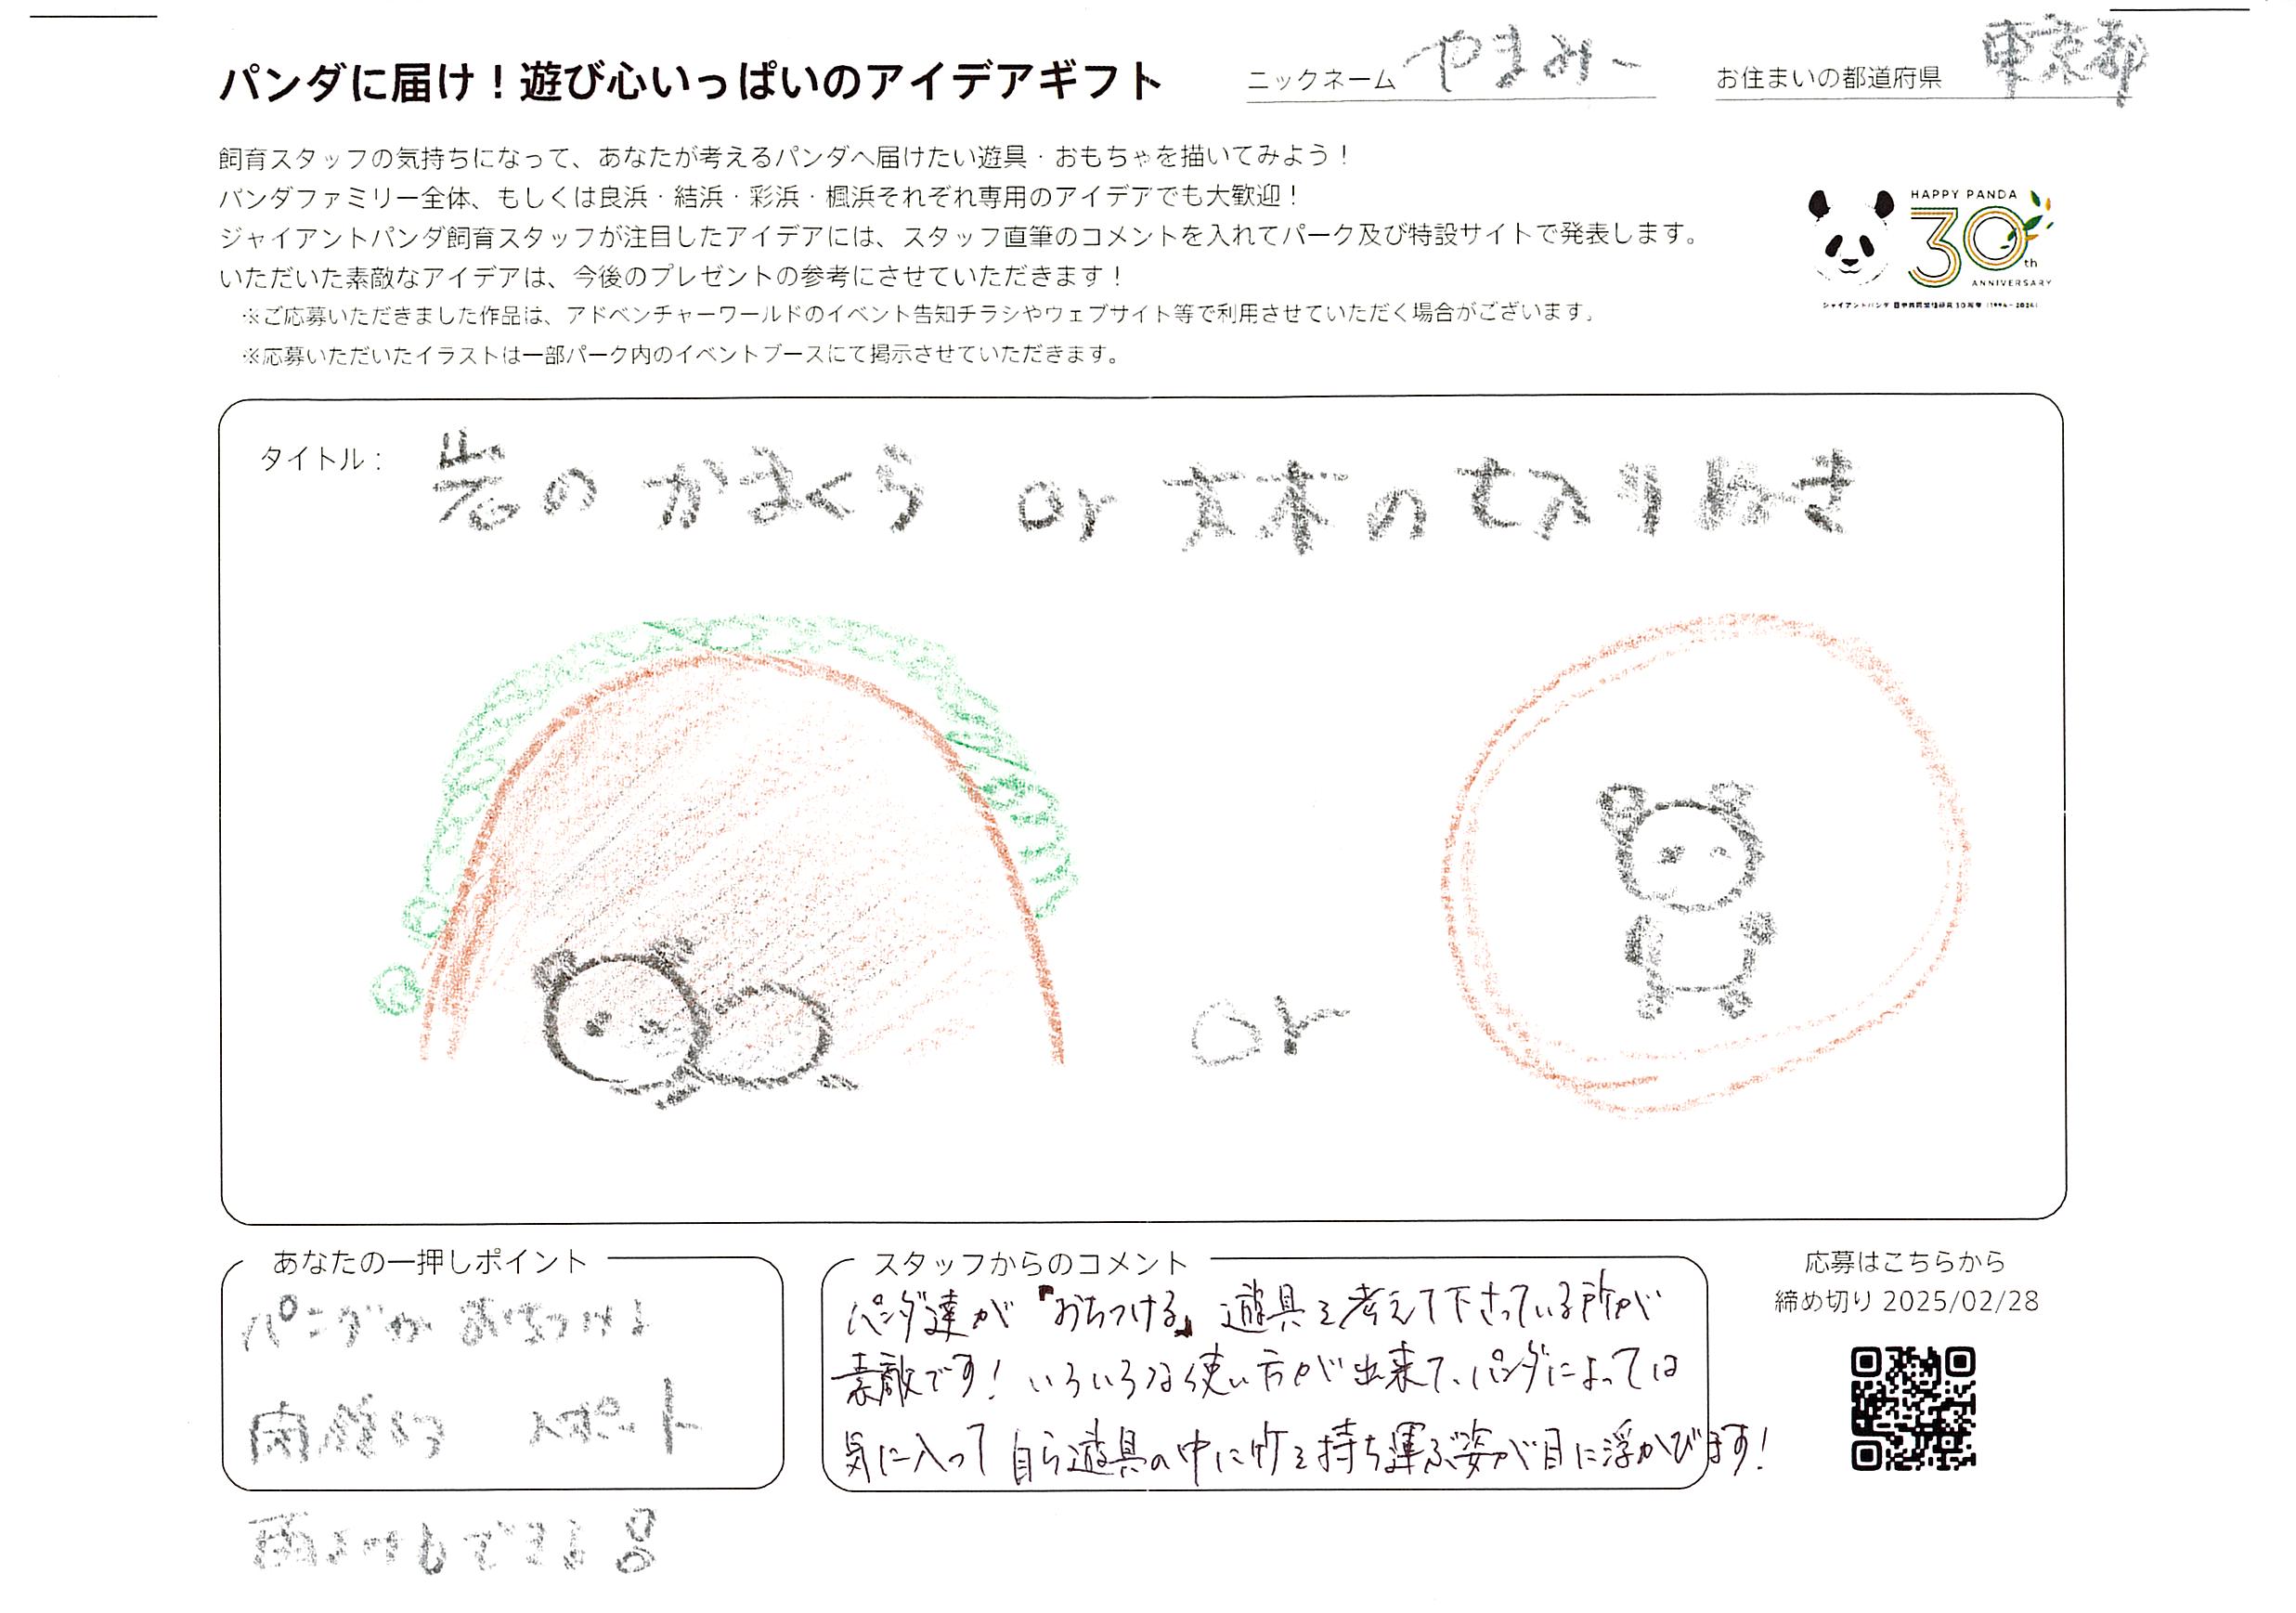 パンダに届け！遊び心いっぱいのアイデアギフト
ニックネーム やまみー
お住まいの都道府県 東京都
飼育スタッフの気持ちになって、あなたが考えるパンダへ届けたい遊具・おもちゃを描いてみよう！
パンダファミリー全体、もしくは良浜・結浜・彩浜・楓浜それぞれ専用のアイデアでも大歓迎！
ジャイアントパンダ飼育スタッフが注目したアイデアには、スタッフ直筆のコメントを入れてパーク及び特設サイトで発表します。
いただいた素敵なアイデアは、今後のプレゼントの参考にさせていただきます！
※ご応募いただきました作品は、アドベンチャーワールドのイベント告知チラシやウェブサイト等で利用させていただく場合がございます。
※応募いただいたイラストは一部パーク内のイベントブースにて掲示させていただきます。
HAPPY PANDA
30th
ANNIVERSARY
タイトル： 岩のかまくら or 丈木の切りぬき
or
あなたの一押しポイント
パンダがおちつける
スポット
雨よけもできる
スタッフからのコメント
パンダ達が『おちつける』遊具を考えて下さっている所が
素敵です！いろいろな使い方が出来て、パンダによっては
気に入って自ら遊具の中に竹を持ち運ぶ姿が目に浮かびます！
応募はこちらから
締め切り 2025/02/28